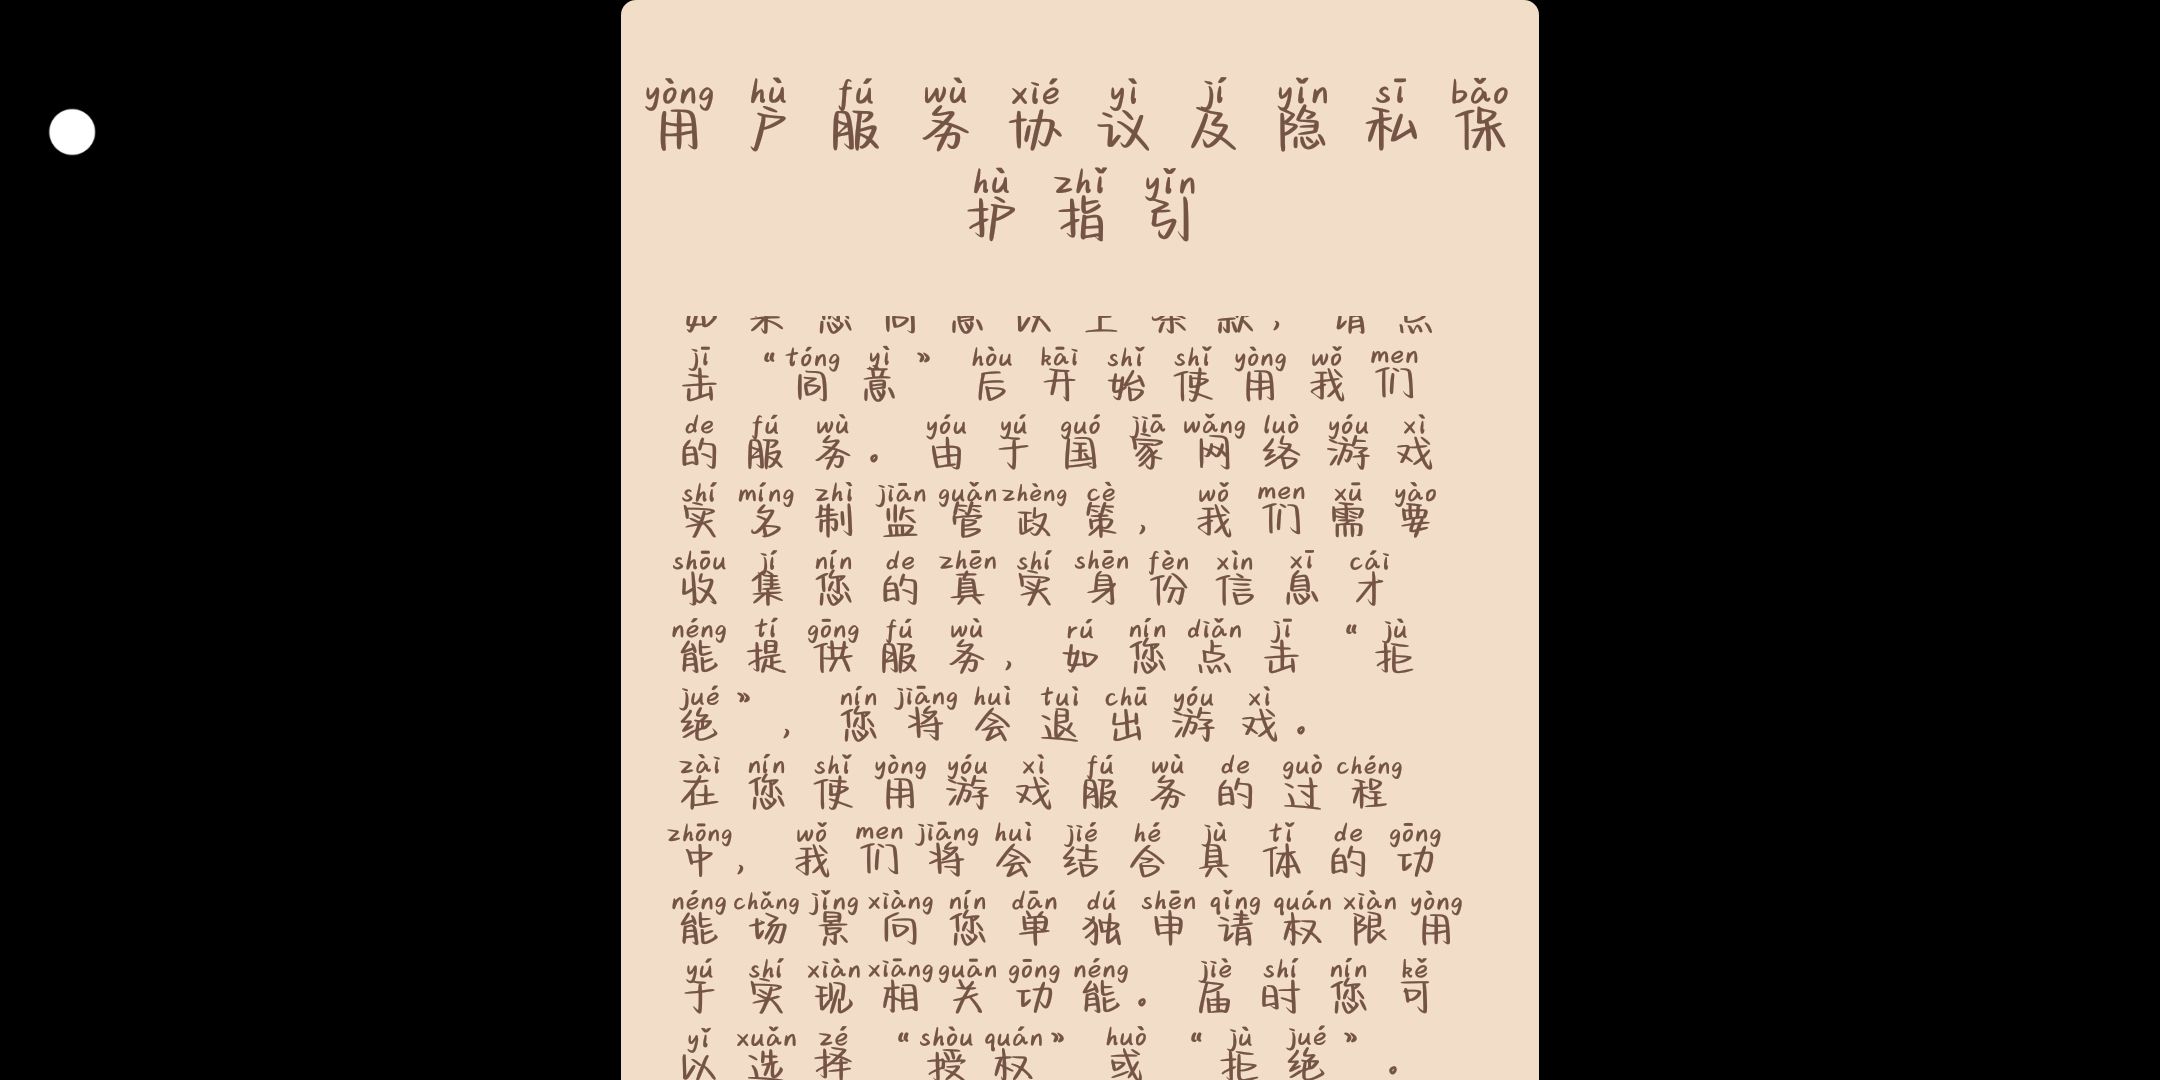 yòng hù fú wù xié yì jí yǐn sī bǎo
用户服务协议及隐私保
hù zhǐ yǐn
护指引
如果您同意以上条款，请点
jī “tóng yì” hòu kāi shǐ shǐ yòng wǒ men
击“同意”后开始使用我们
de fú wù yóu yú guó jiā wǎng luò yóu xì
的服务。由于国家网络游戏
shí míng zhì jiān guǎn zhèng cè wǒ men xū yào
实名制监管政策，我们需要
shōu jí nín de zhēn shí shēn fèn xìn xī cái
收集您的真实身份信息才
néng tí gōng fú wù rú nín diǎn jī “jù
能提供服务，如您点击“拒
jué” nín jiāng huì tuì chū yóu xì
绝”，您将会退出游戏。
zài nín shǐ yòng yóu xì fú wù de guò chéng
在您使用游戏服务的过程
zhōng wǒ men jiāng huì jié hé jù tǐ de gōng
中，我们将会结合具体的功
néng chǎng jǐng xiàng nín dān dú shēn qǐng quán xiàn yòng
能场景向您单独申请权限用
yú shí xiàn xiāng guān gōng néng jiè shí nín kě
于实现相关功能。届时您可
yǐ xuǎn zé “shòu quán” huò “jù jué”
以选择“授权”或“拒绝”。